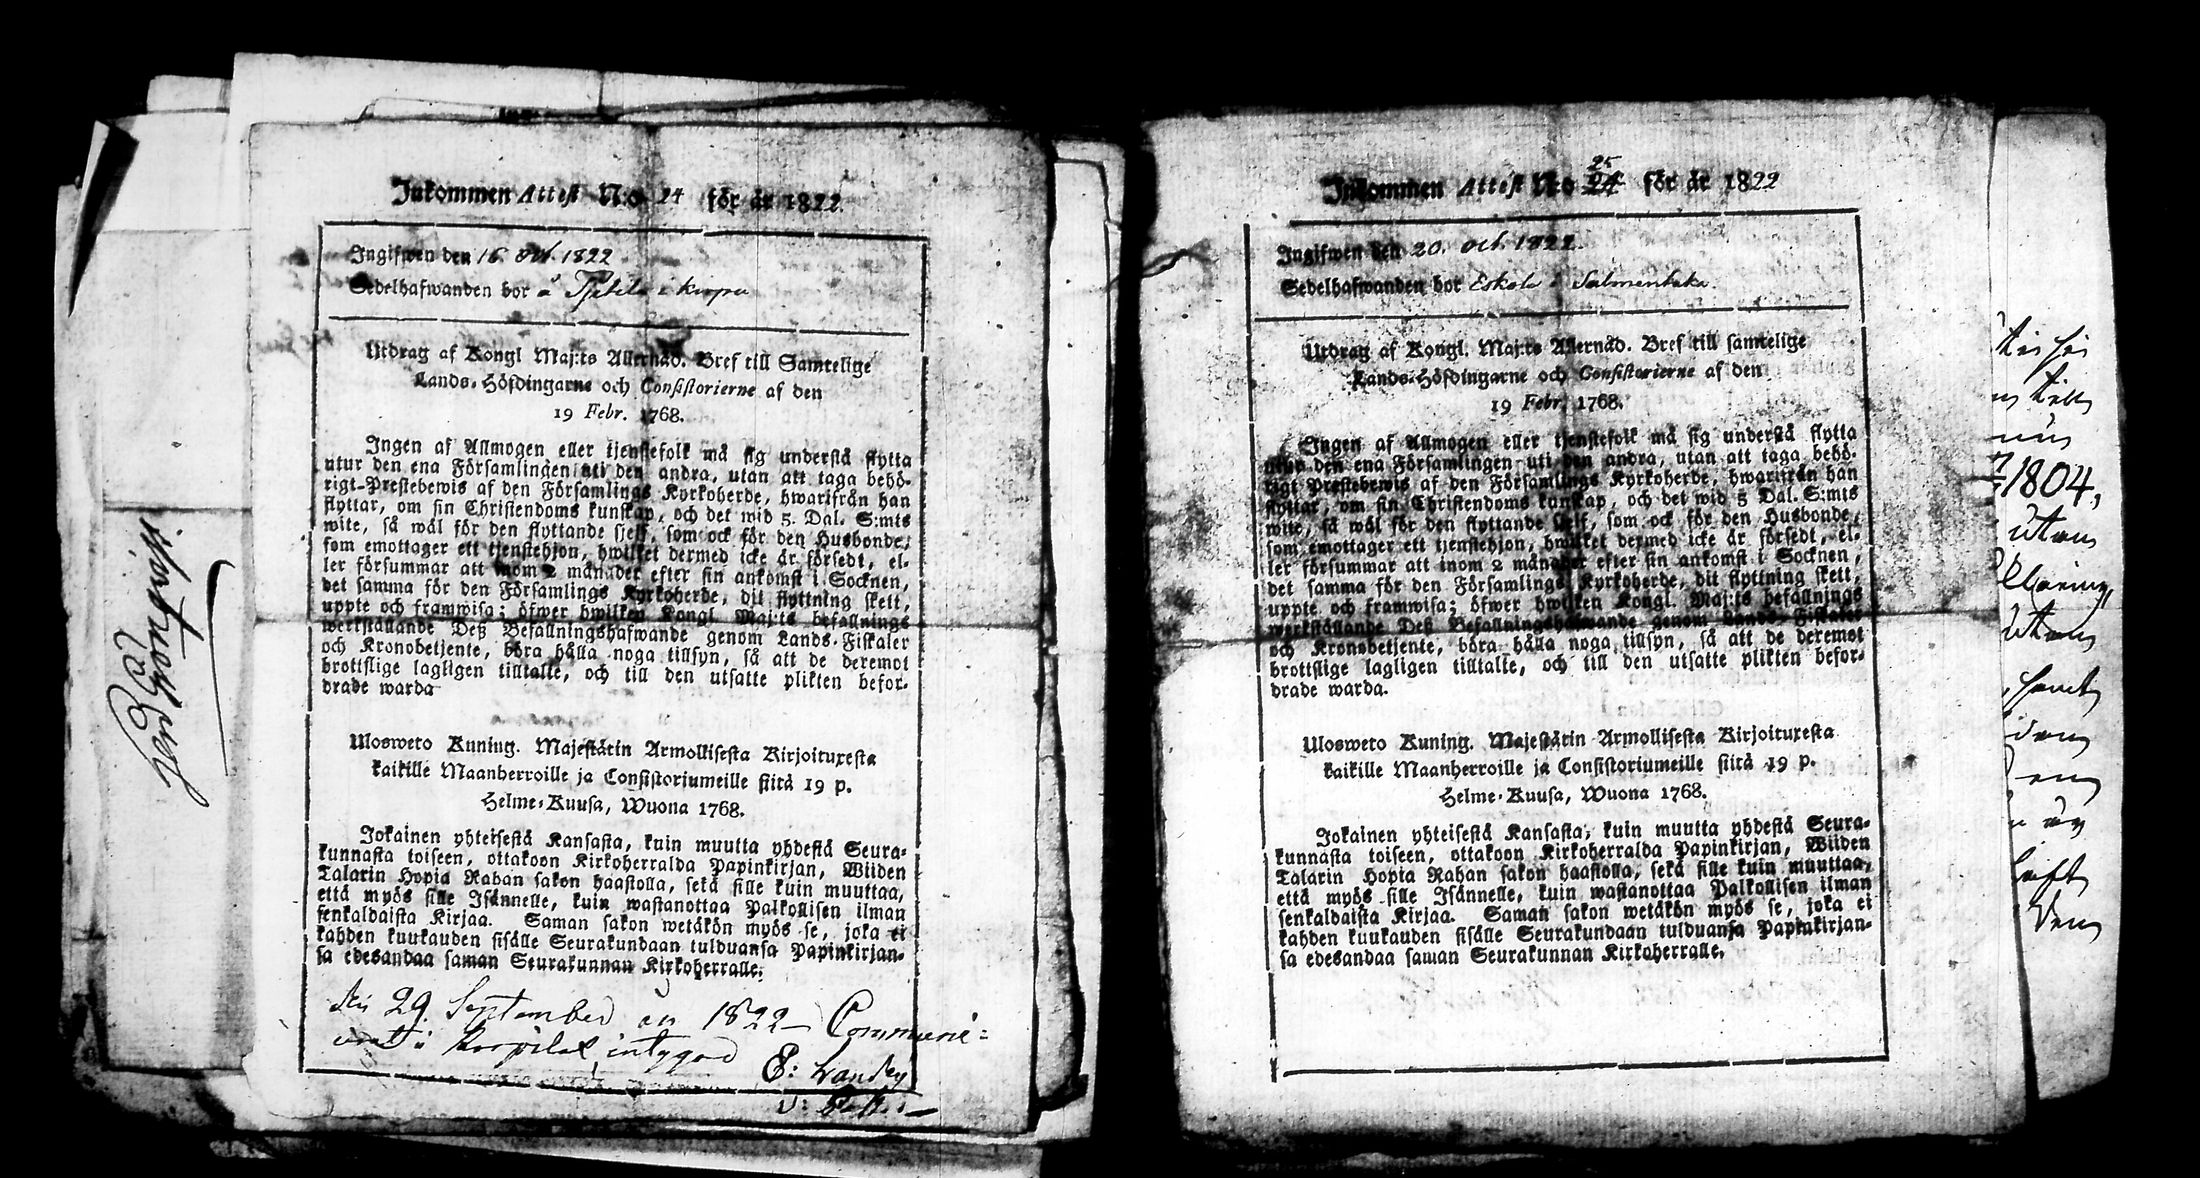 Inkommen Attest No 24 för år 1822.
Ingifwen den 16. Oct. 1822
Sedelhafwanden bor å i
Utdrag af Kongl Maj:ts Allernåd. Bref till Samtelige
Lands-Höfdingarne och Consistorierne af den
19 Febr. 1768.
Ingen af Allmogen eller tjenstefolk må sig understå flytta
utur den ena Församlingen uti den andra, utan att taga behö-
rigt-Prestebewis af den Församlings Kyrkoherde, hwarifrån han
flyttar, om sin Christendoms kunskap, och det wid 5. Dal. S:mts
wite, så wäl för den flyttande sjelf, som ock för den Husbonde,
som emottager ett tjenstehjon, hwilket dermed icke är försedt, el-
ler försummar att inom 2 månader efter sin ankomst i Socknen,
det samma för den Församlings Kyrkoherde, dit flyttning skett,
uppte och framwisa; öfwer hwilken Kongl. Maj:ts befallnings
werkställande Deß Befallningshafwande genom Lands-Fiskaler
och Kronobetjente, böra hålla noga tillsyn, så att de deremot
brottslige lagligen tilltalte, och till den utsatte plikten befor-
drade warda
Ulosweto Kuning. Majestätin Armollisesta Kirjoituxesta
kaikille Maanherroille ja Consistoriumeille siitä 19 p.
Helme-Kuusa, Wuona 1768.
Jokainen yhteisestä Kansasta, kuin muutta yhdestä Seura-
kunnasta toiseen, ottakoon Kirkoherralda Papinkirjan, Wiiden
Talarin Hopia Rahan sakon haastolla, sekä sille kuin muuttaa,
että myös sille Isännelle, kuin wastanottaa Palkollisen ilman
senkaldaista Kirjaa. Saman sakon wetäkön myös se, joka ei
kahden kuukauden sisälle Seurakundaan tulduansa Papinkirjan-
sa edesandaa saman Seurakunnan Kirkoherralle.
29 September 1822 Communi=
intygar
E:
Inkommen Attest No 25 24 för år 1822
Ingifwen den 20. Oct. 1822.
Sedelhafwanden bor Eskola i
Utdrag af Kongl. Maj:ts Allernåd. Bref till samtelige
Lands-Höfdingarne och Consistorierne af den
19 Febr. 1768.
Ingen af Allmogen eller tjenstefolk må sig understå flytta
utur den ena Församlingen uti den andra, utan att taga behö-
rigt Prestebewis af den Församlings Kyrkoherde, hwarifrån han
flyttar, om sin Christendoms kunskap, och det wid 5 Dal. S:mts
wite, så wäl för den flyttande sjelf, som ock för den Husbonde,
som emottager ett tjenstehjon, hwilket dermed icke är försedt, el-
ler försummar att inom 2 månader efter sin ankomst i Socknen,
det samma för den Församlings Kyrkoherde, dit flyttning skett,
uppte och framwisa; öfwer hwilken Kongl. Maj:ts befallnings
werkställande Deß Befallningshafwande genom Lands-Fiskaler
och Kronobetjente, böra hålla noga tillsyn, så att de deremot
brottslige lagligen tilltalte, och till den utsatte plikten befor-
drade warda.
Ulosweto Kuning. Majestätin Armollisesta Kirjoituxesta
kaikille Maanherroille ja Consistoriumeille siitä 19 p.
Helme-Kuusa, Wuona 1768.
Jokainen yhteisestä Kansasta, kuin muutta yhdestä Seura-
kunnasta toiseen, ottakoon Kirkoherralda Papinkirjan, Wiiden
Talarin Hopia Rahan sakon haastolla, sekä sille kuin muuttaa,
että myös sille Isännelle, kuin wastanottaa Palkollisen ilman
senkaldaista Kirjaa. Saman sakon wetäkön myös se, joka ei
kahden kuukauden sisälle Seurakundaan tulduansa Papinkirjan-
sa edesandaa saman Seurakunnan Kirkoherralle.
1804,
utan
utan